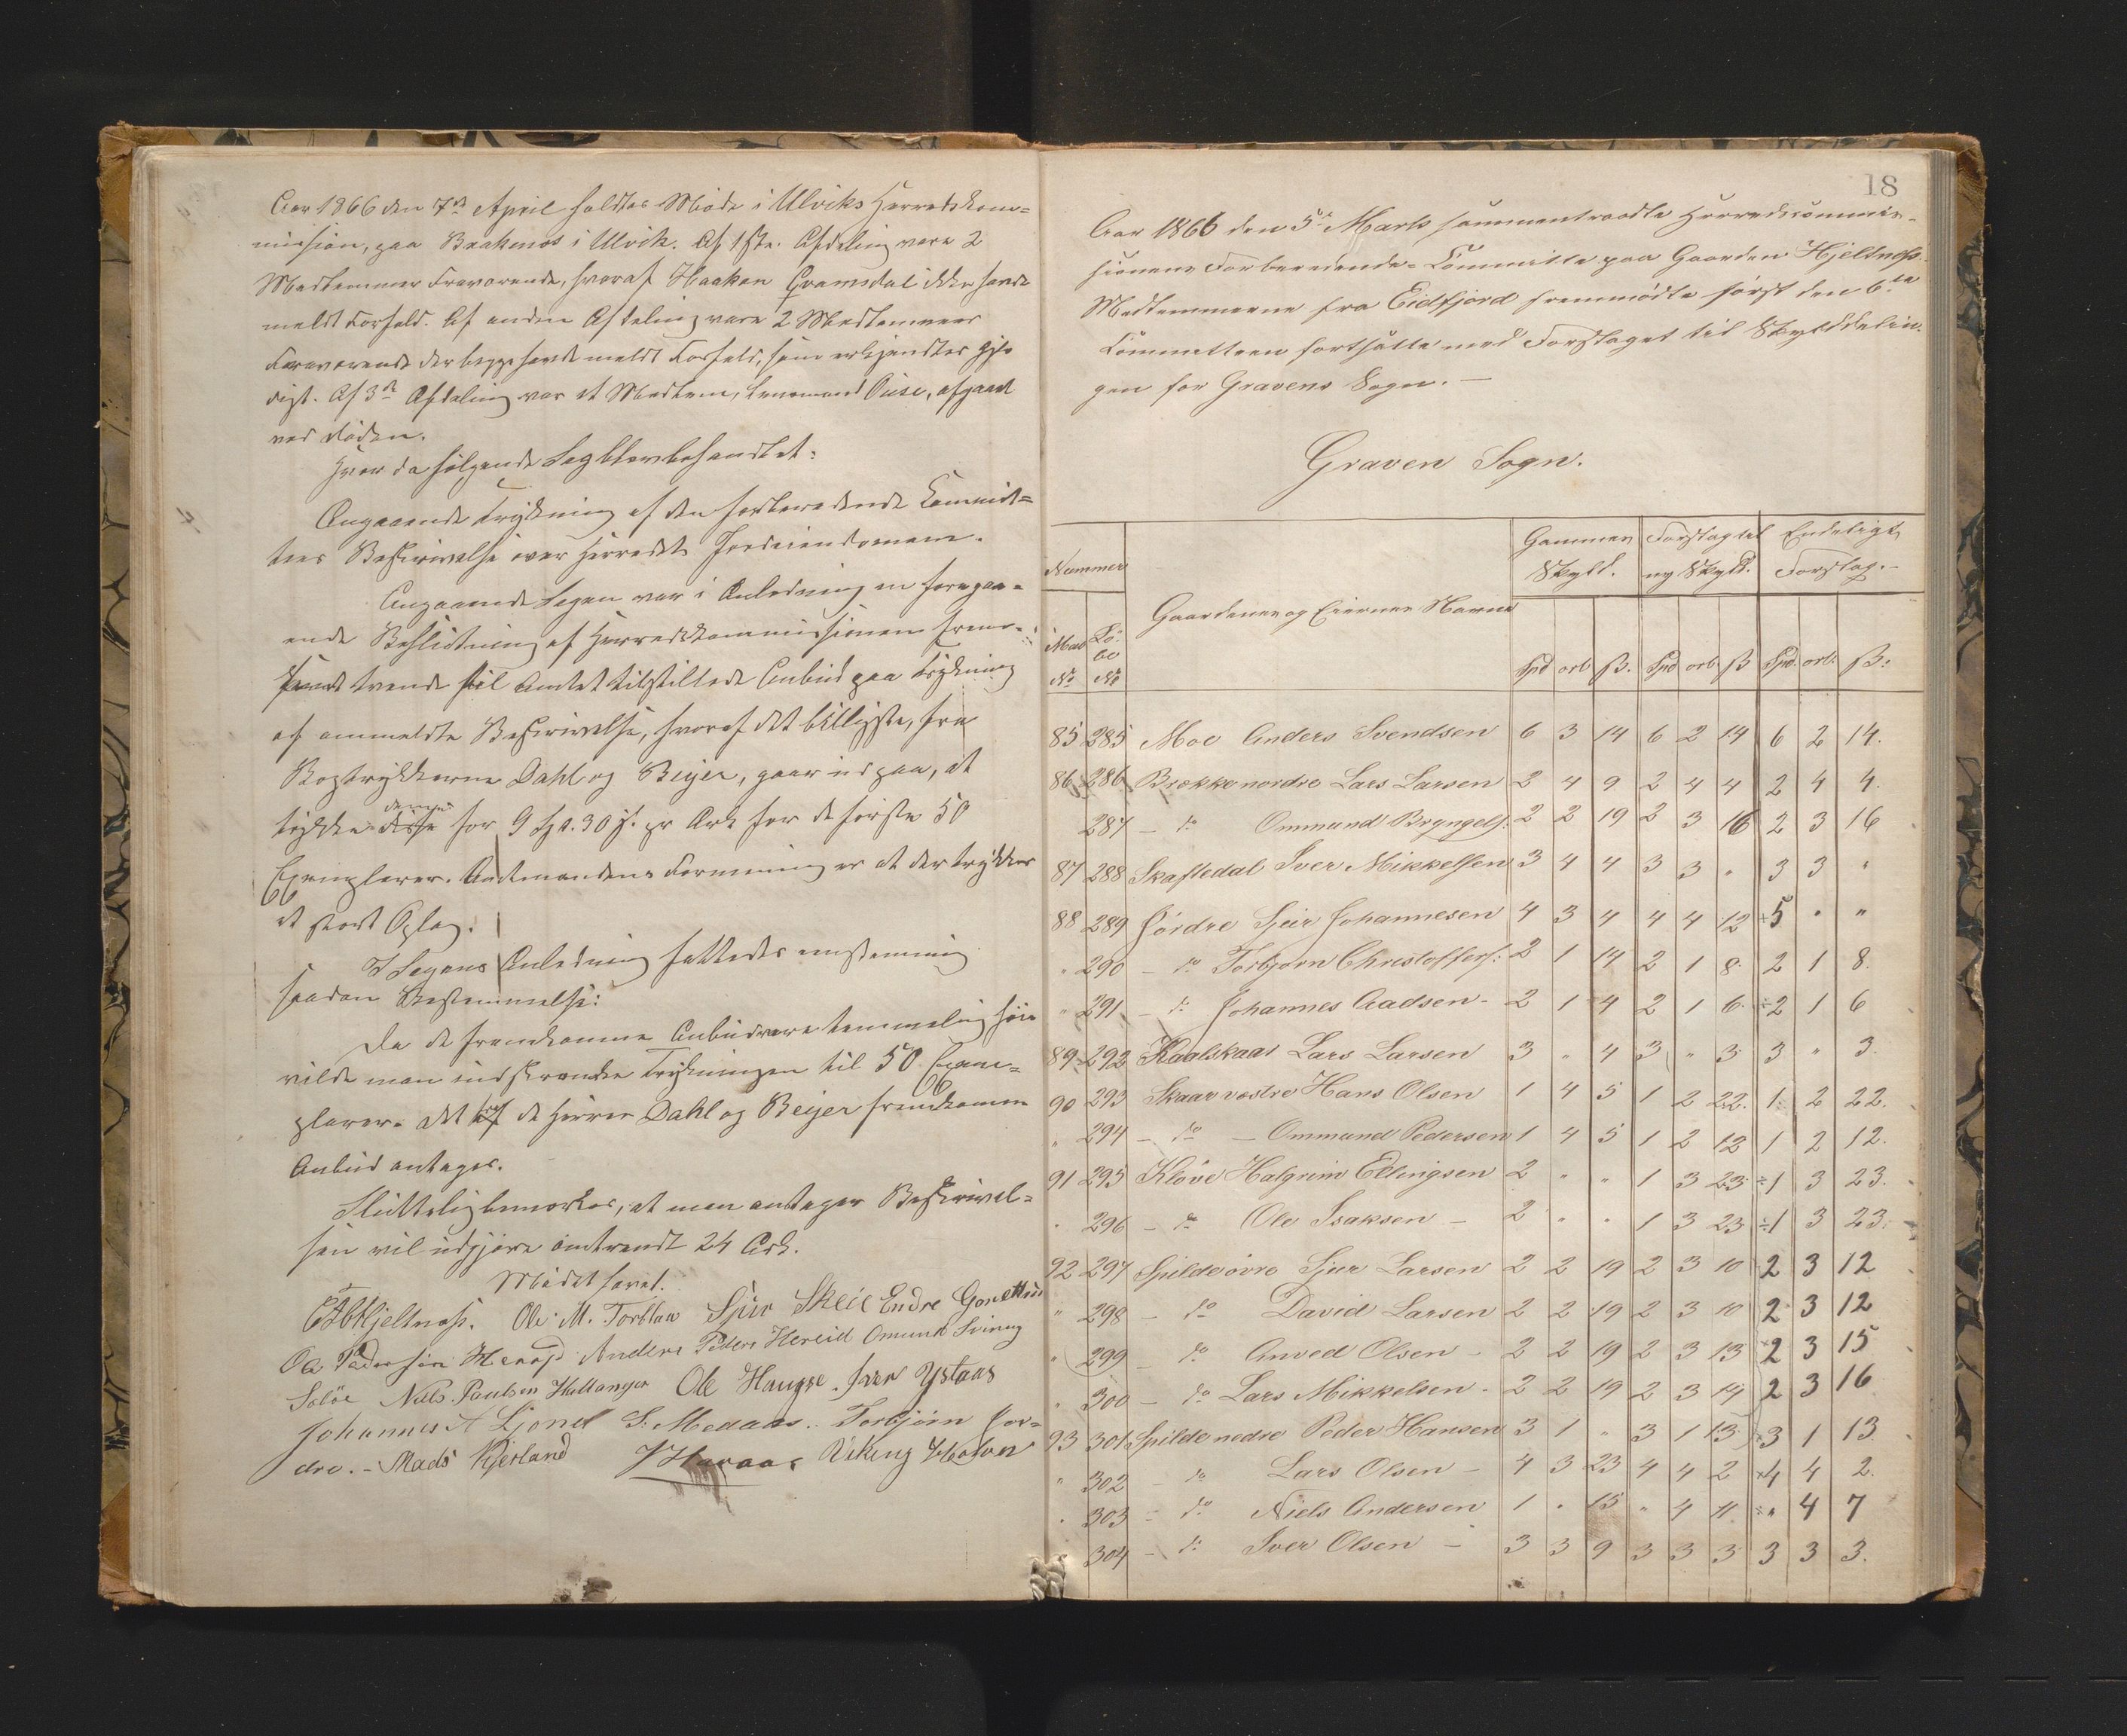 Aar 1866 den 7de April holdtes Møde i Ulviks Herredskom=
mission, paa Brakenæs i Ulvik. Af 1ste Afdeling vare 2
Medlemmer fraværende, hvoraf Haaken Qvamsdal ikke havde
meldt Forfald. Af anden Afdeling vare 2 Medlemmer
fraværende der begge havde meldt Forfald, som erkjendtes gyl-
digt. Af 3die Afdeling var et Medlem, Lensmand Öuse, afgaaet
ved Døden.
Hvor da følgende Sag blev behandlet:
Angaaende Trykning af den forberedende Commit=
tees Beskrivelse over Herredets Jordeiendomme.
Angaaende Sagen var i Anledning en foregaa=
ende Beslutning af Herredskommissionen frem=
sendt trende til Amtet tilstillede Anbud paa Trykning
af ommeldte Beskrivelse, hvoraf det billigste, fra
Bogtrykkerne Dahl og Beyer, gaar ud paa, at
trykke denne for 9 Spd. 30 ß. pr Ark for de første 50
Exemplarer. Amtmandens Formening er at der trykkes
et stort Oplag.
I Sagens Anledning fattedes eenstemmig
saadan Bestemmelse:
Da de fremkomne Anbud vare temmelig høie
vilde man indskrænke Trykningen til 50 Exem=
plarer. Det af de Herrer Dahl og Beyer fremkomne
Anbud antages.
Sluttelig bemærkes, at man antager Beskrivel=
sen vil udgjøre omtrendt 24 Ark.
Mødet hævet.
Hjeltnæs. Ole M. Torblaa Sjur Skeie Endre
Ole Pedersen Anders Peders Hereid Omund
Nils Paulsen Ole Hauge. Iver Ystaas
Johannes S. Medaas. Torbjørn Jor=
dre. - Mads Kjerland Haraas Viking
18
Aar 1866 den 5te Marts sammentraadte Herredscommis-
sionens Forberedende=Committe paa Gaarden Hjeltnæs.
Medlemmerne fra Eidfjord fremmødte først den 6te
Committeen fortsatte med Forslaget til Skylddelin-
gen for Gravens Sogn. —
Graven Sogn.
Nummer Gaardenes og Eiernes Navne Gammel Skyld. Forslag til ny Skyld. Endeligt Forslag.-
Mat No Lö- be No Spd ort ß. Spd ort ß Spd. ort. ß:
85 285 Moe Anders Svendsen 6 3 14 6 2 14 6 2 14.
86 286. Brække nordre Lars Larsen 2 4 9 2 4 4 2 4 4.
287 - do Ommund Bryngels. 2 2 19 2 3 16 2 3 16
87 288 Skaftedal Iver Mikkelsen 3 4 4 3 3 " 3 3 "
88 289 Jördre Sjur Johannesen 4 3 4 4 4 12 ÷5 " "
" 290 - do Torbjörn Christoffers: 2 1 14 2 1 8. 2 1 8.
" 291 - do Johannes Aadsen - 2 1 4 2 1 6. ÷2 1 6
89 292 Kaalskaar Lars Larsen 3 " 4 3 " 3 3 " 3.
90 293 Skaar vestre Hans Olsen 1 4 5 1 2 22. 1 2 22.
" 294 - do - Ommund Pedersen 1 4 5 1 2 12 1 2 12.
91 295 Klöve Halgrim Ellingsen 2 " " 1 3 23 ÷1 3 23.
" 296 - do Ole Isaksen - 2 " " 1 3 23 ÷1 3 23.
92 297 Spilde övre Sjur Larsen 2 2 19 2 3 10 2 3 12
" 298 - do David Larsen 2 2 19 2 3 10 2 3 12
" 299 - do Anved Olsen - 2 2 19 2 3 13 2 3 15
" 300 - do Lars Mikkelsen - 2 2 19 2 3 14 2 3 16
93 301 Spilde nedre Peder Hansen 3 1 " 3 1 13 3 1 13
" 302 - do Lars Olsen - 4 3 23 4 4 2 4 4 2.
" 303 - do Niels Andersen 1 " 15 " 4 11 ÷ " 4 7
304 - do Iver Olsen - 3 3 9 3 3 3 3 3 3.